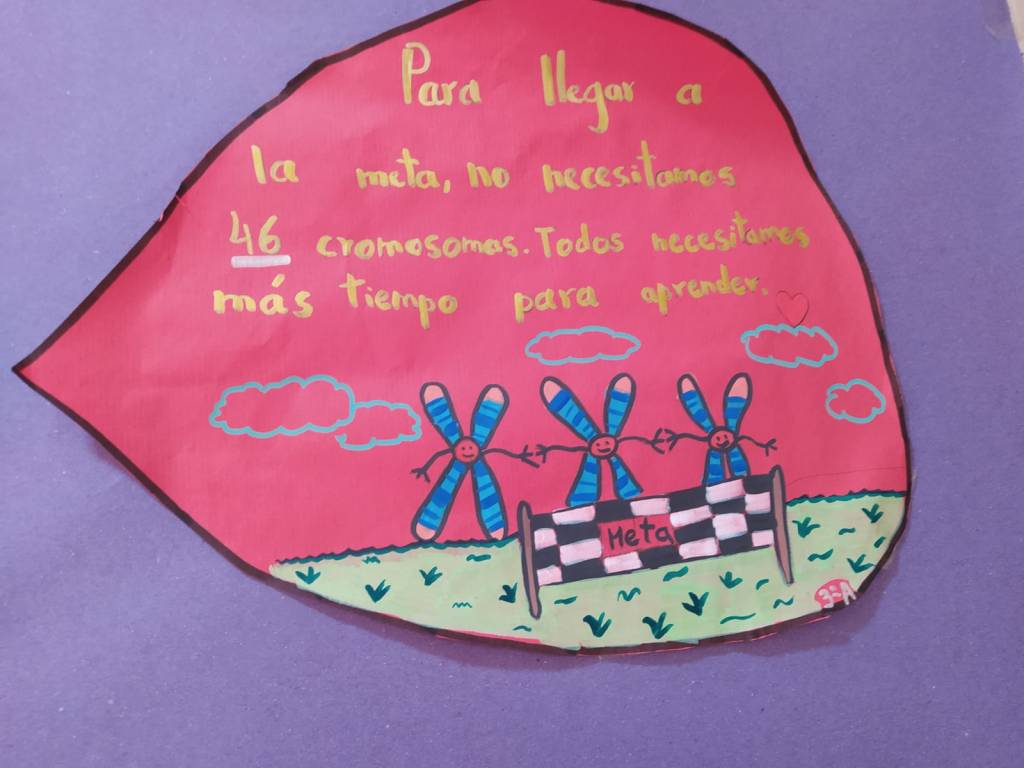 Para llegar a
la meta, no necesitamos
46 cromosomas. Todos necesitames
más tiempo para aprender.
Meta
3ºA